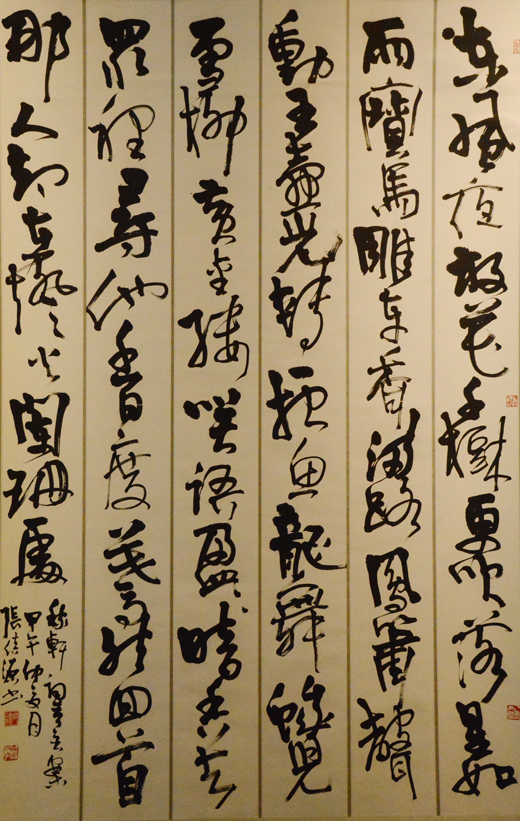 東風夜放花千樹更吹落星如
雨寶馬雕車香滿路鳳簫聲
動玉壺光轉一夜魚龍舞蛾兒
雪柳黃金縷笑語盈盈暗香去
眾裡尋他千百度驀然回首
那人卻在燈火闌珊處
稼軒詞青玉案
甲午仲夏月
張信源书